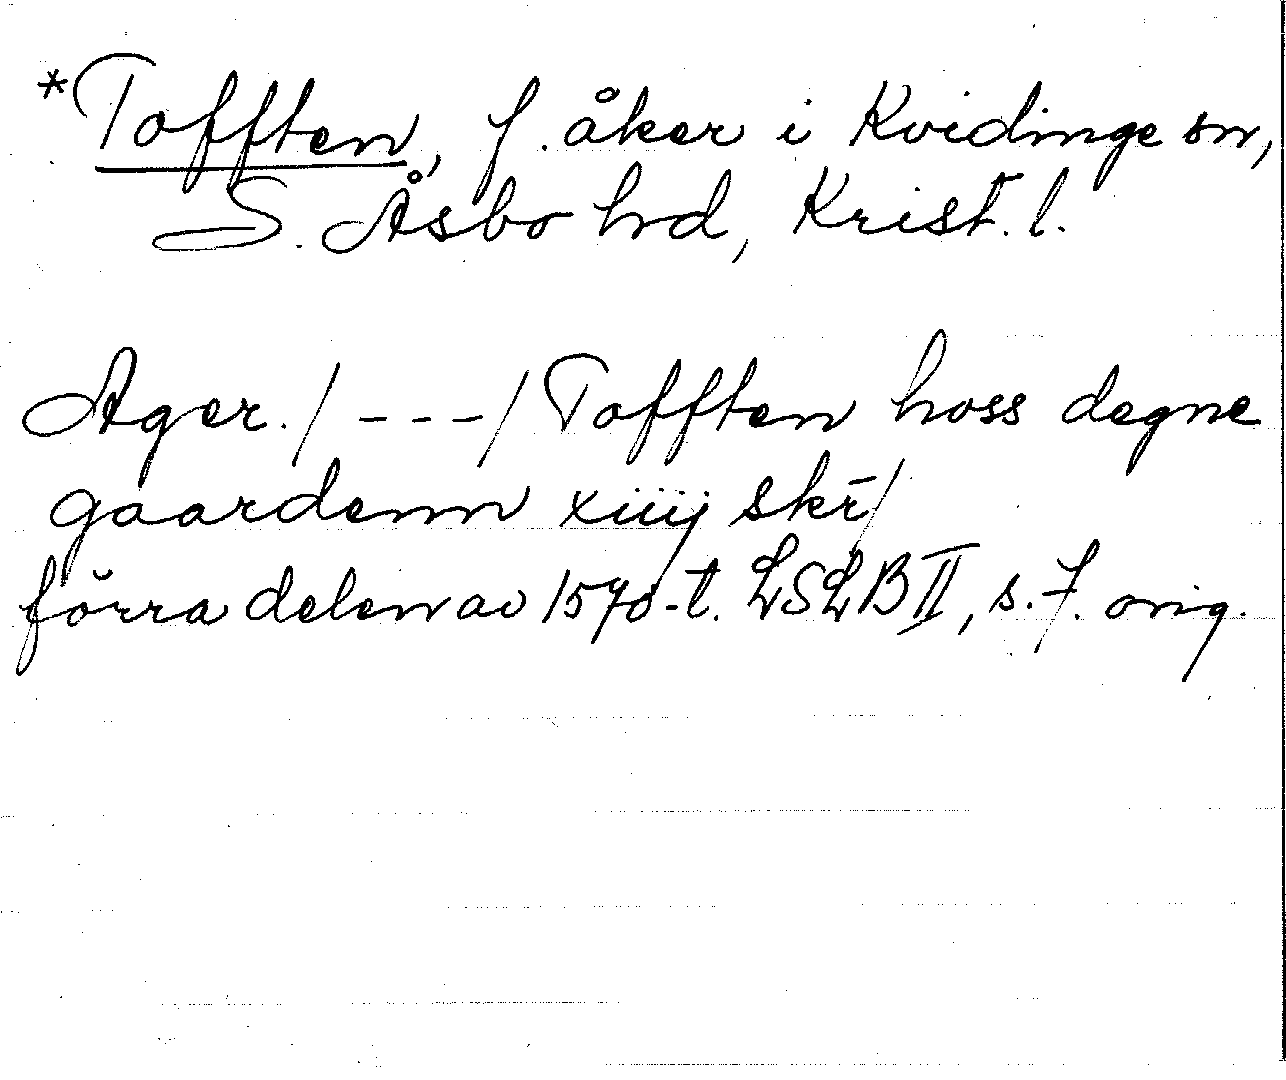 *Tofften, f. åker i Kvidinge sn,
S. Åsbo hd, Krist. l.
Ager. / - - - / Tofften hoss degne
gaardenn xiiij skr̄ /
förra delen av 1570-t. LSLB II, s. 7. orig.